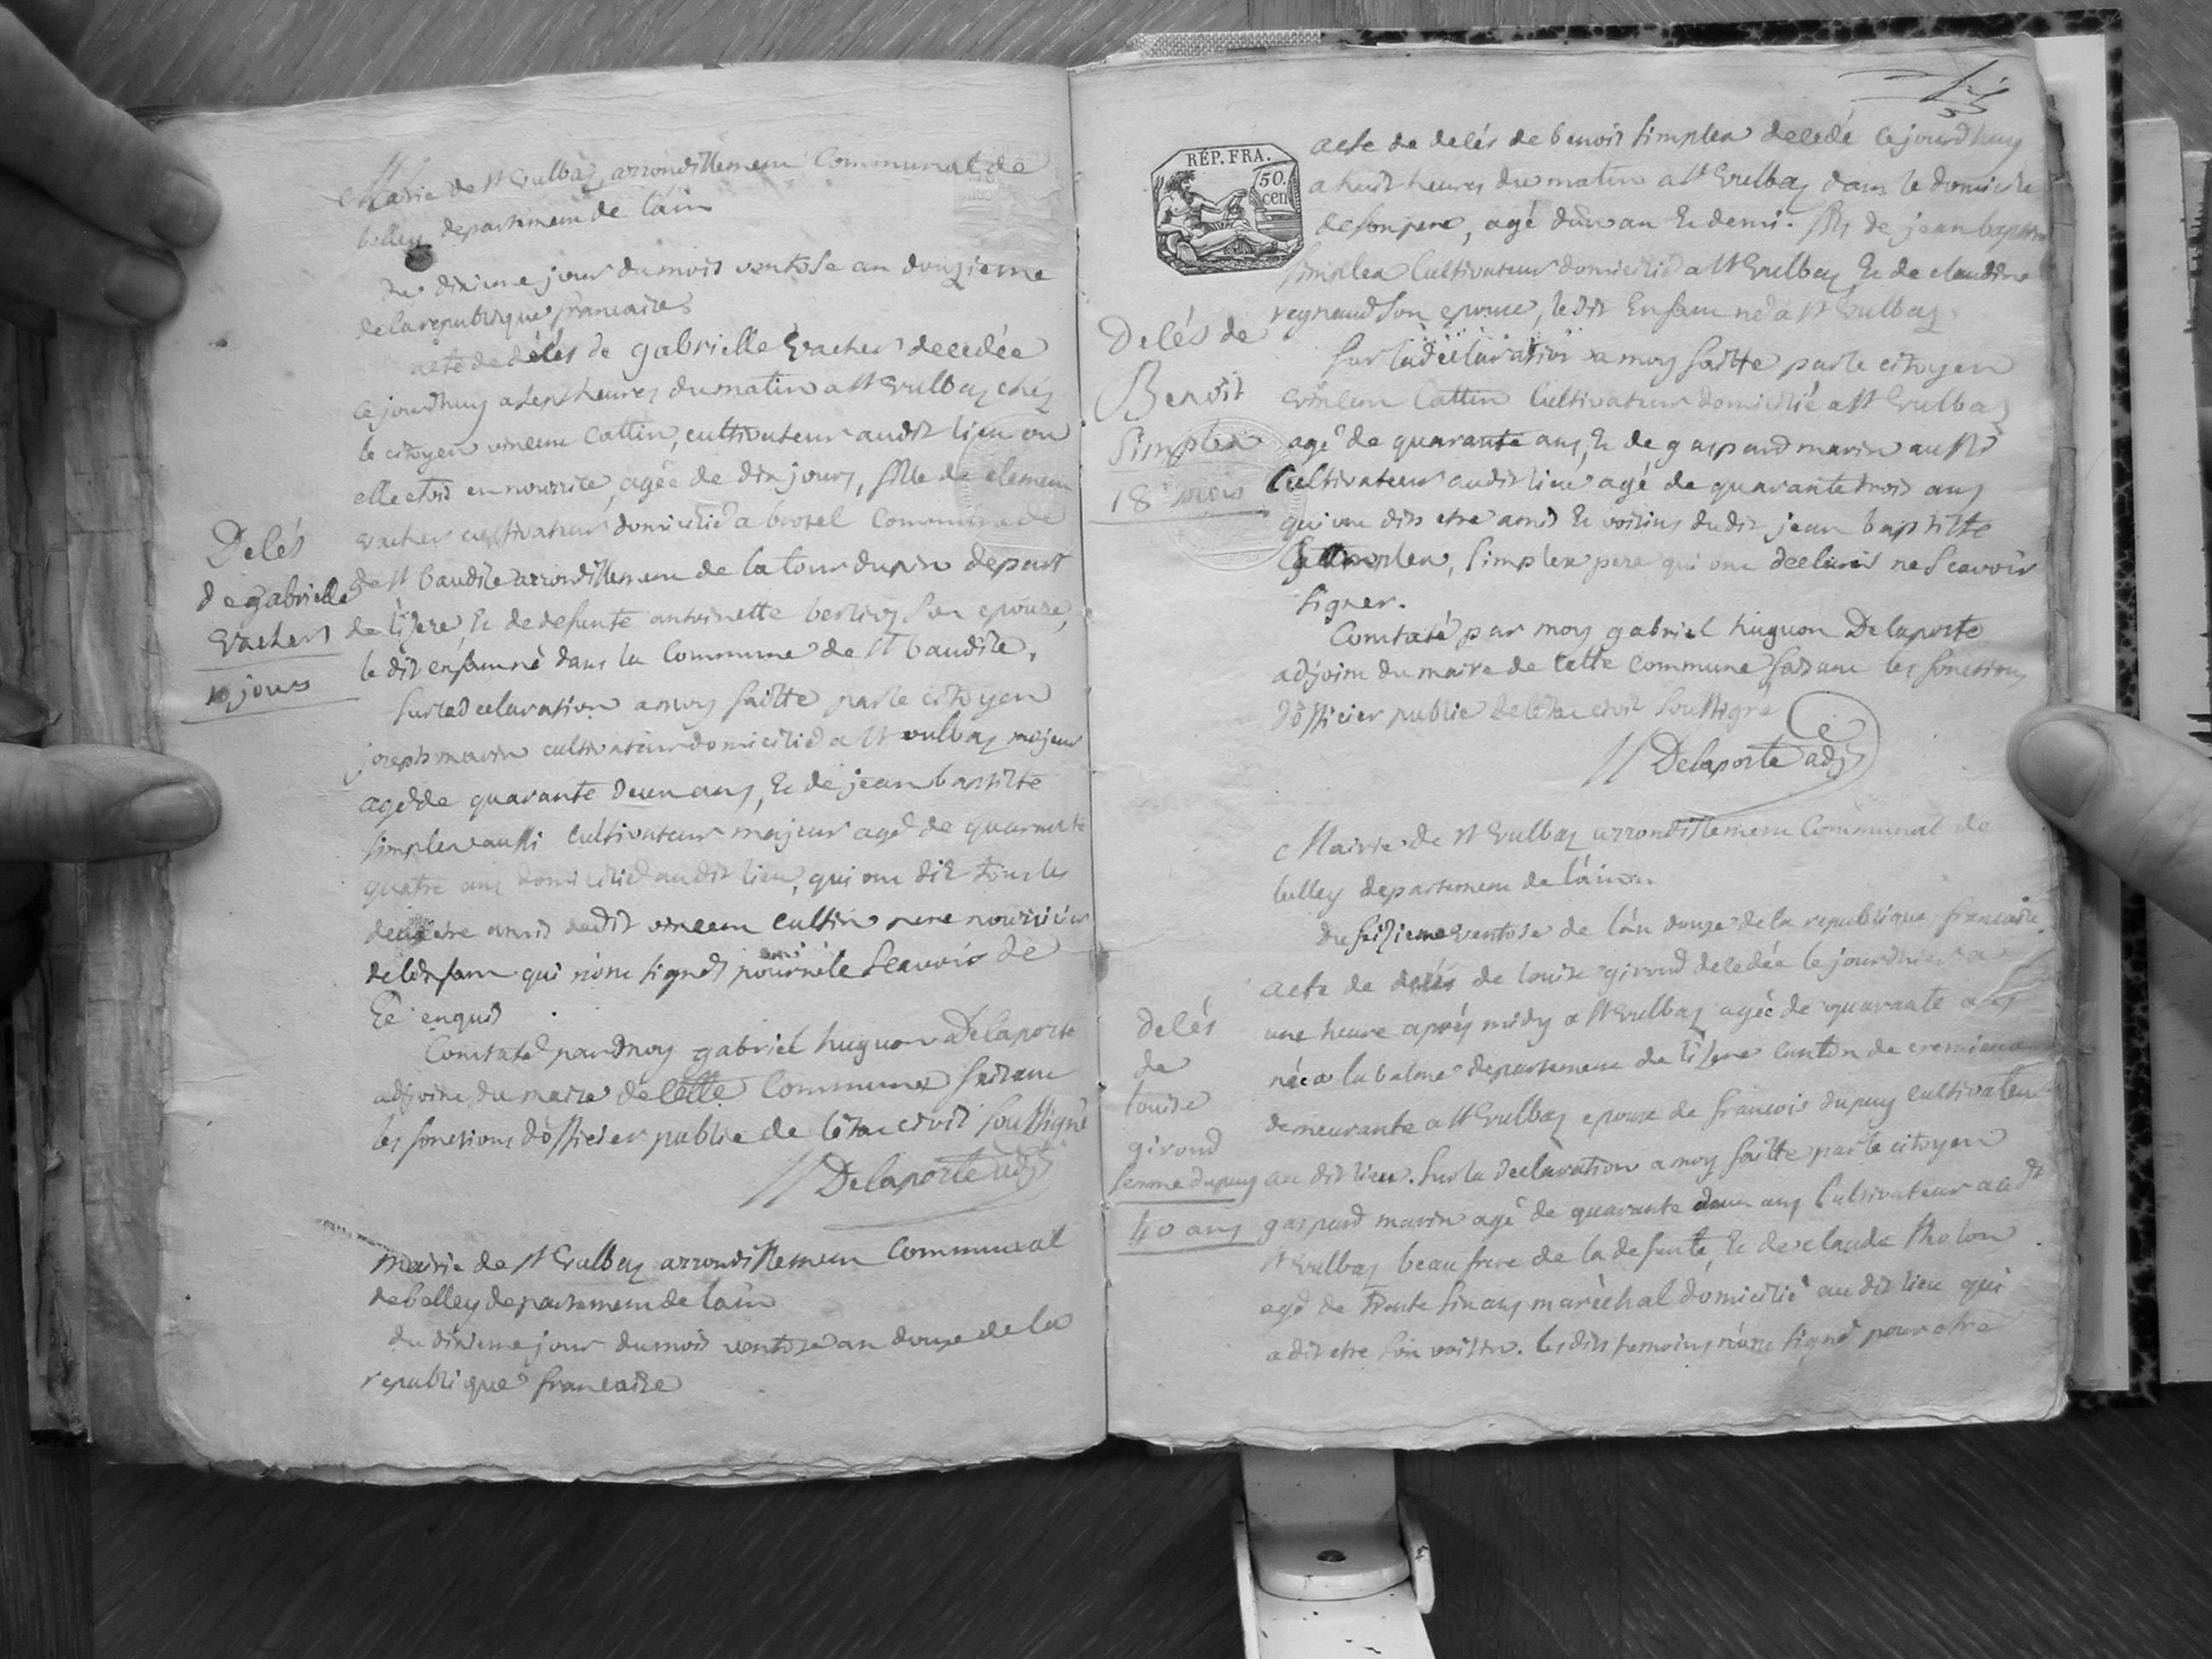 Mairie de St Vulbaz, arrondissement Communal de
belley departement de lain
du dixieme jour du mois ventose an douzieme
de la republique francaise
acte de décés de gabrielle Vacher decedée
cejourdhuy a sept heures du matin a St Vulbaz chez
le citoyen vincent Cattin, cultivateur audit lieu ou
elle etoit en nourrice, agée de dix jours, fille de clement
vacher cultivateur domicilié a brosel Commune de
Decés
de gabrielle
Vacher
10 jours
de St baudile arrondissement de la tour dupin depart
de lisere, & de defunte antoinette berlioz son epouse,
le dit enfant né dans la Commune de St baudile.
Sur la declaration a moy faitte par le citoyen
joseph marin cultivateur domicilié a St vulbaz majeur
agé de quarante deux ans, & de jean baptiste
simplex aussi cultivateur majeur agé de quarante
quatre ans domicilié audit lieu, qui ont dit tous les
deux etre amis dudit vincent Cattin pere nourricier
de lenfant qui n'ont signés pour ne le scavoir de
ce enquis
Constaté par moy gabriel huguon Delaporte
adjoint du maire de Cette Commune faisant
les fonctions dofficier public de l'état civil soussigné
Delaporte adjt
Mairie de St Vulbaz arrondissement Communal
de belley departement de lain
du dixieme jour du mois ventose an douze de la
republique francaise
RÉP. FRA.
50.
cen
acte de decés de benoit simplex decedé cejourdhuy
a huit heures du matin a St Vulbaz dans le domicile
de son pere, agé d'un an & demi. fils de jean baptiste
simplex Cultivateur domicilié a St Vulbaz & de claudine
reynaud son epouse, le dit Enfant né a St Vulbaz.
Decés de
Benoit
Simplex
18 mois
Sur la déclaration a moy faitte par le citoyen
vincent Cattin Cultivateur domicilié a St Vulbaz
agé de quarante ans, & de gaspard marin aussi
Cultivateur audit lieu agé de quarante trois ans
qui ont dits etre amis & voisins dudit jean baptiste
simplex, Simplex pere qui ont declaré ne Scavoir
signer.
Constaté par moy gabriel huguon Delaporte
adjoint du maire de Cette commune faisant les fonctions
d'officier public de létat civil soussigné
Delaporte adjt
Mairie de St Vulbaz arrondissement Communal de
belley departement de l'ain.
du seizieme ventose de l'an douze de la republique francaise
decés
de
louise
giroud
femme dupuy
40 ans
acte de decés de louise giroud decedée le jourdhier a
une heure aprés midy a St Vulbaz agée de quarante ans
née a la balme departement de lisere canton de cremieux
demeurante a St Vulbaz epouse de francois dupuy cultivateur
au dit lieu. Sur la declaration a moy faitte par le citoyen
gaspard marin agé de quarante deux ans Cultivateur audt
St Vulbaz beau frere de la defunte, & de claude
agé de trente six ans maréchal domicilié au dit lieu qui
a dit etre son voisin. les dits temoins n'ont signé pour etre